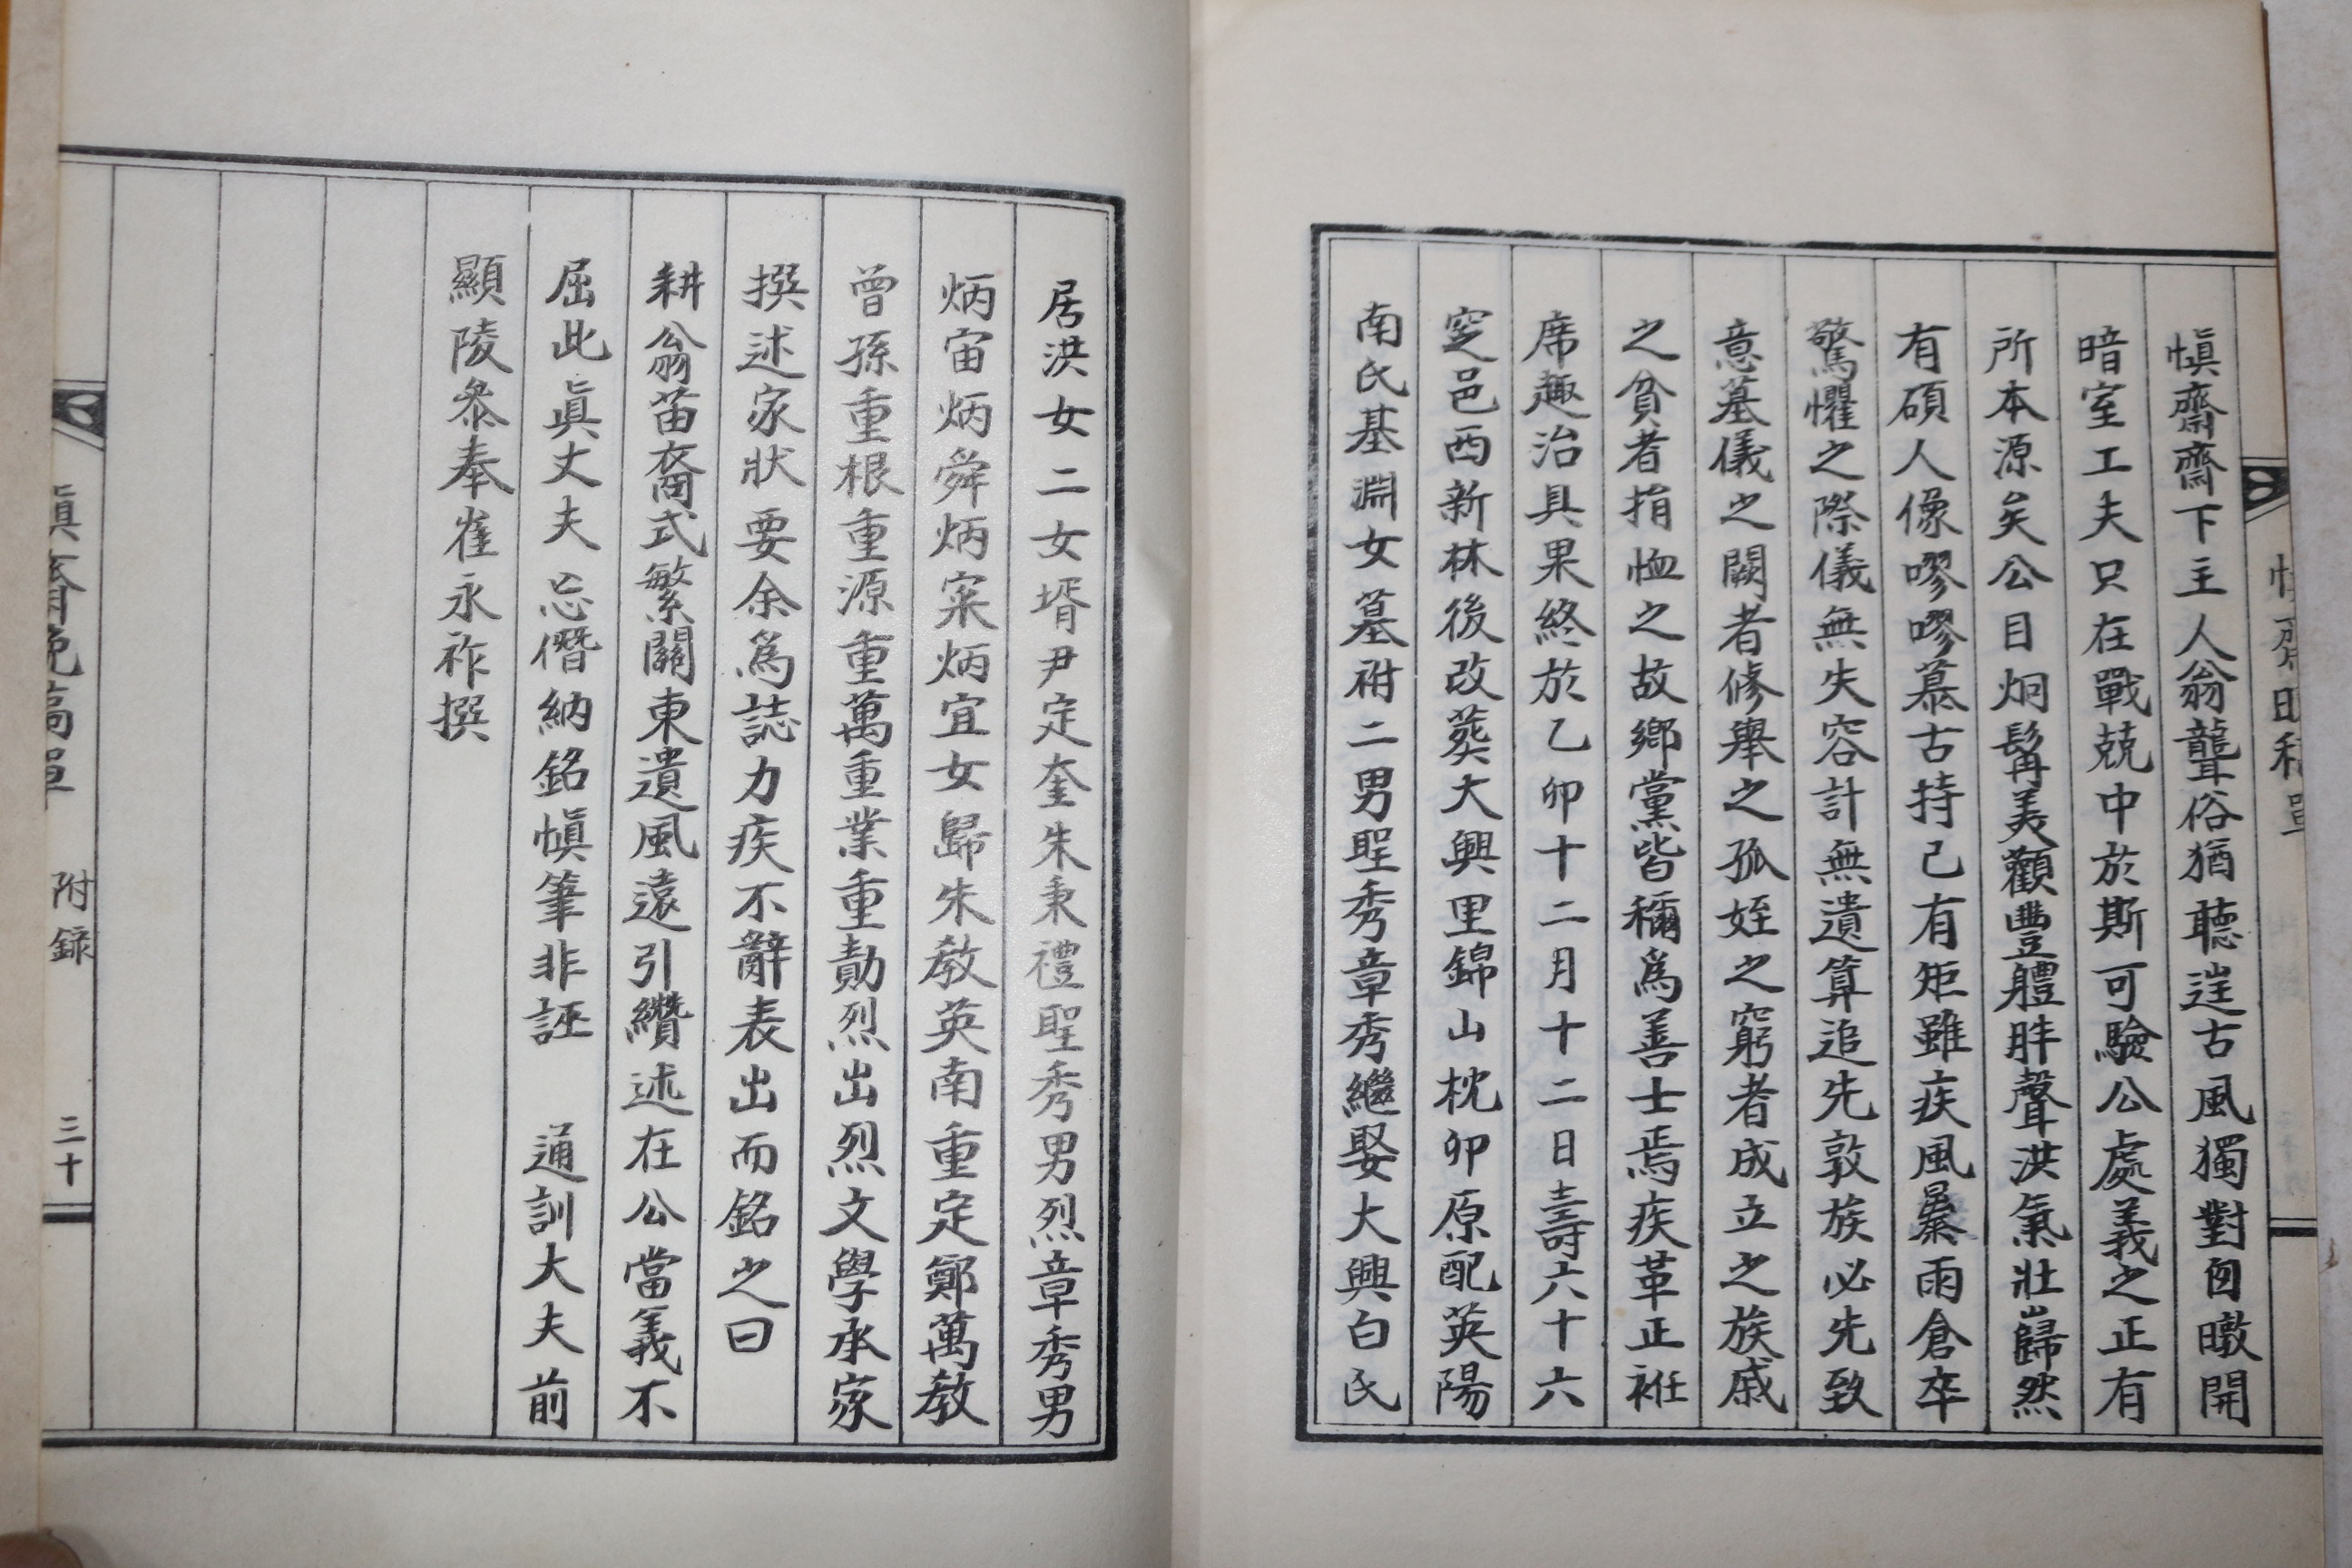 愼齋齋下主人翁聾俗猶聽逞古風獨對囱暾開
暗室工夫只在戰兢中於斯可驗公處義之正有
所本源矣公目炯髯美顴豊軆胖聲洪氣壯巋然
有碩人像嘐嘐慕古持己有矩雖疾風暴雨倉卒
驚懼之際儀無失容計無遺算追先敦族必先致
意墓儀之闕者修擧之孤姪之窮者成立之族戚
之貧者捐恤之故鄕黨皆稱爲善士焉疾革正衽
席趣治具果終於乙卯十二月十二日壽六十六
窆邑西新林後改葬大興里錦山枕卯原配英陽
南氏基淵女墓祔二男聖秀章秀繼娶大興白氏
居洪女二女壻尹定奎朱秉禮聖秀男烈章秀男
炳宙炳舜炳寀炳宜女歸朱敎英南重定鄭萬敎
曾孫重根重源重萬重業重勣烈出烈文學承家
撰述家狀要余爲誌力疾不辭表出而銘之曰
耕翁菑裔式繁關東遺風遠引纘述在公當義不
屈此眞丈夫忘僭納銘愼筆非誣　通訓大夫前
顯陵叅奉崔永祚撰
附録
三十